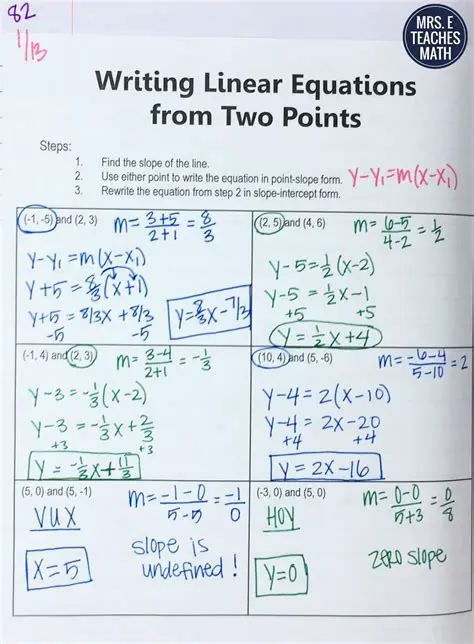 82
1/13
MRS. E
TEACHES
MATH
Writing Linear Equations
from Two Points
Steps:
1. Find the slope of the line.
2. Use either point to write the equation in point-slope form. y-y₁=m(x-x₁)
3. Rewrite the equation from step 2 in slope-intercept form.
(-1, -5) and (2, 3) m=3+5/2+1=8/3
y-y₁=m(x-x₁)
y+5=8/3(x+1)
y+5=8/3x+8/3
-5 -5
y=8/3x-7/3
(2, 5) and (4, 6) m=6-5/4-2=1/2
y-5=1/2(x-2)
y-5=1/2x-1
+5 +5
y=1/2x+4
(-1, 4) and (2, 3) m=3-4/2+1=-1/3
y-3=-1/3(x-2)
y-3=-1/3x+2/3
+3 +3
y=-1/3x+11/3
(10, 4) and (5, -6) m=-6-4/5-10=2
y-4=2(x-10)
y-4=2x-20
+4 +4
y=2x-16
(5, 0) and (5, -1) m=-1-0/5-5=-1/0
VUX
slope is
undefined!
x=5
(-3, 0) and (5, 0) m=0-0/5+3=0/8
HOY
zero slope
y=0